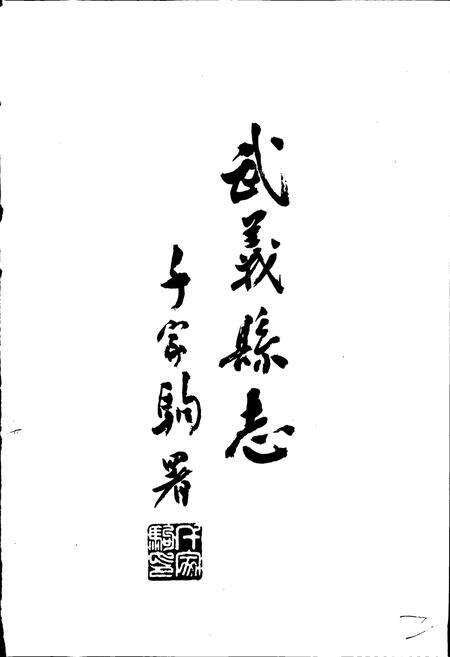 武義縣志
千家駒署
千家駒印